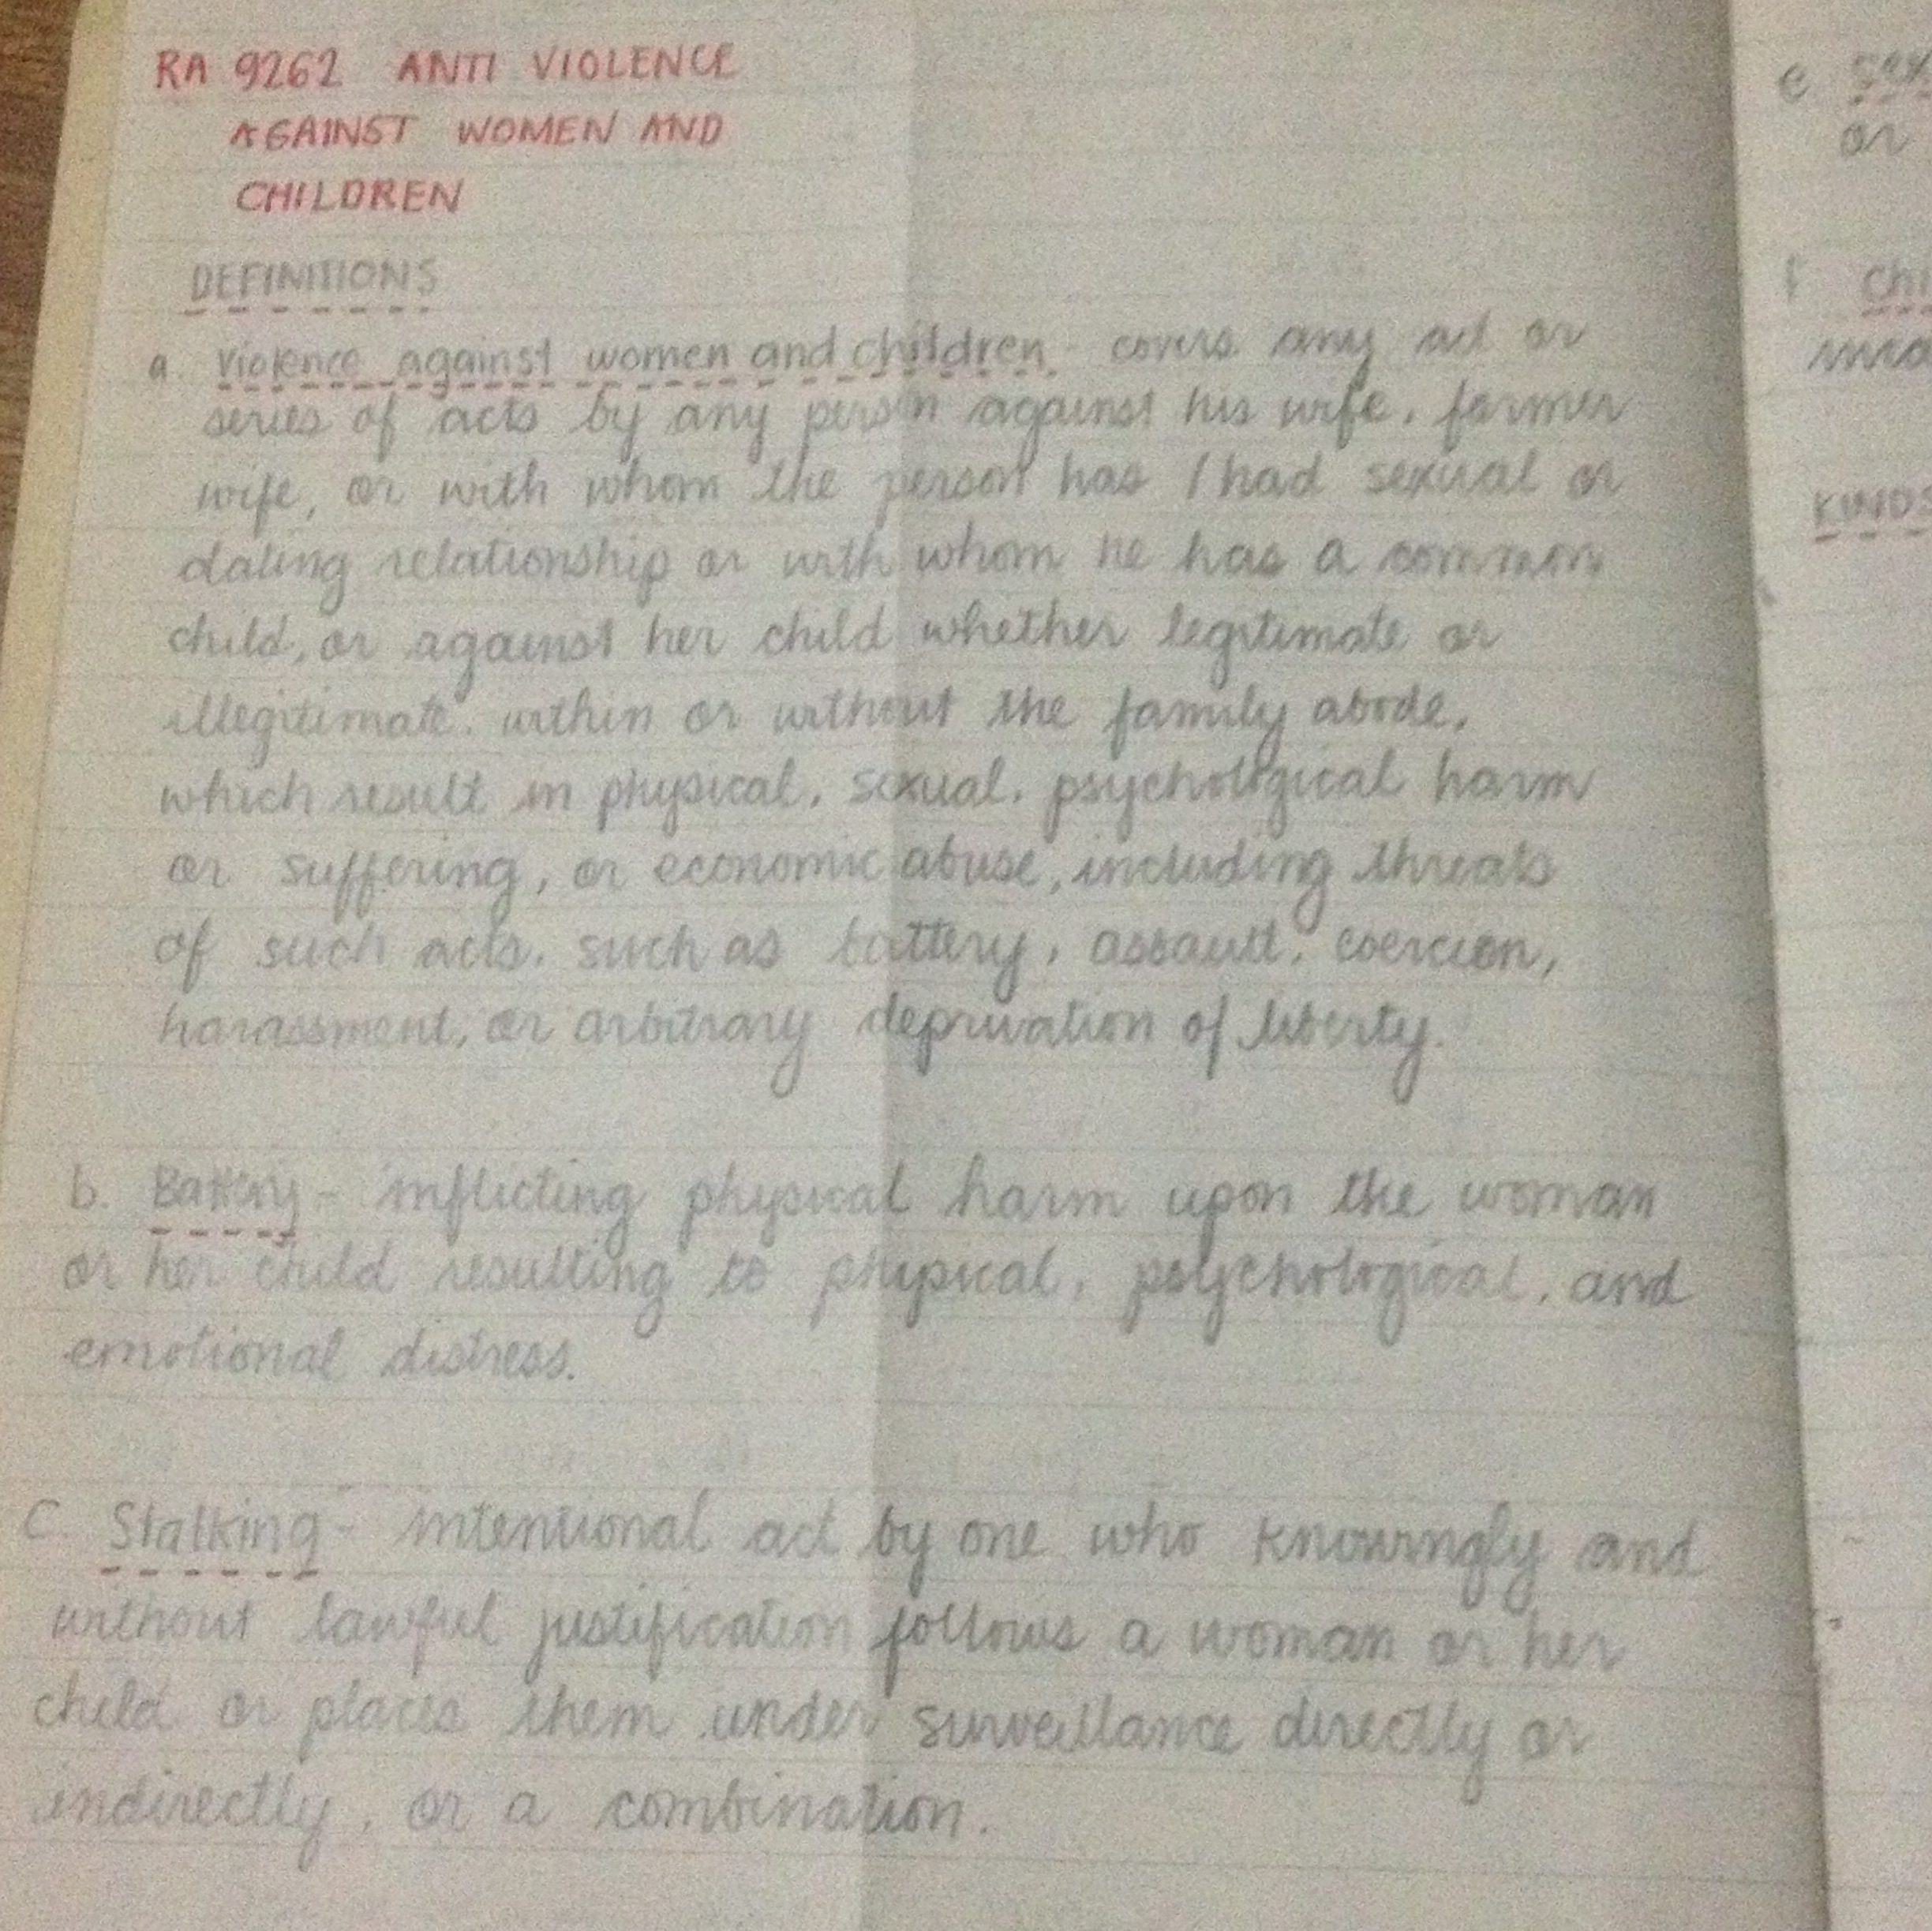 RA 9262 ANTI VIOLENCE
AGAINST WOMEN AND
CHILDREN
DEFINITIONS
a. Violence against women and children - covers any act or
series of acts by any person against his wife, former
wife, or with whom the person has / had sexual or
dating relationship or with whom he has a common
child, or against her child whether legitimate or
illegitimate, within or without the family abode,
which result in physical, sexual, psychological harm
or suffering, or economic abuse, including threats
of such acts, such as battery, assault, coercion,
harassment, or arbitrary deprivation of liberty.
b. Battery - inflicting physical harm upon the woman
or her child resulting to physical, psychological, and
emotional distress.
c. Stalking - intentional act by one who knowingly and
without lawful justification follows a woman or her
child or places them under surveillance directly or
indirectly, or a combination.
e
or
f